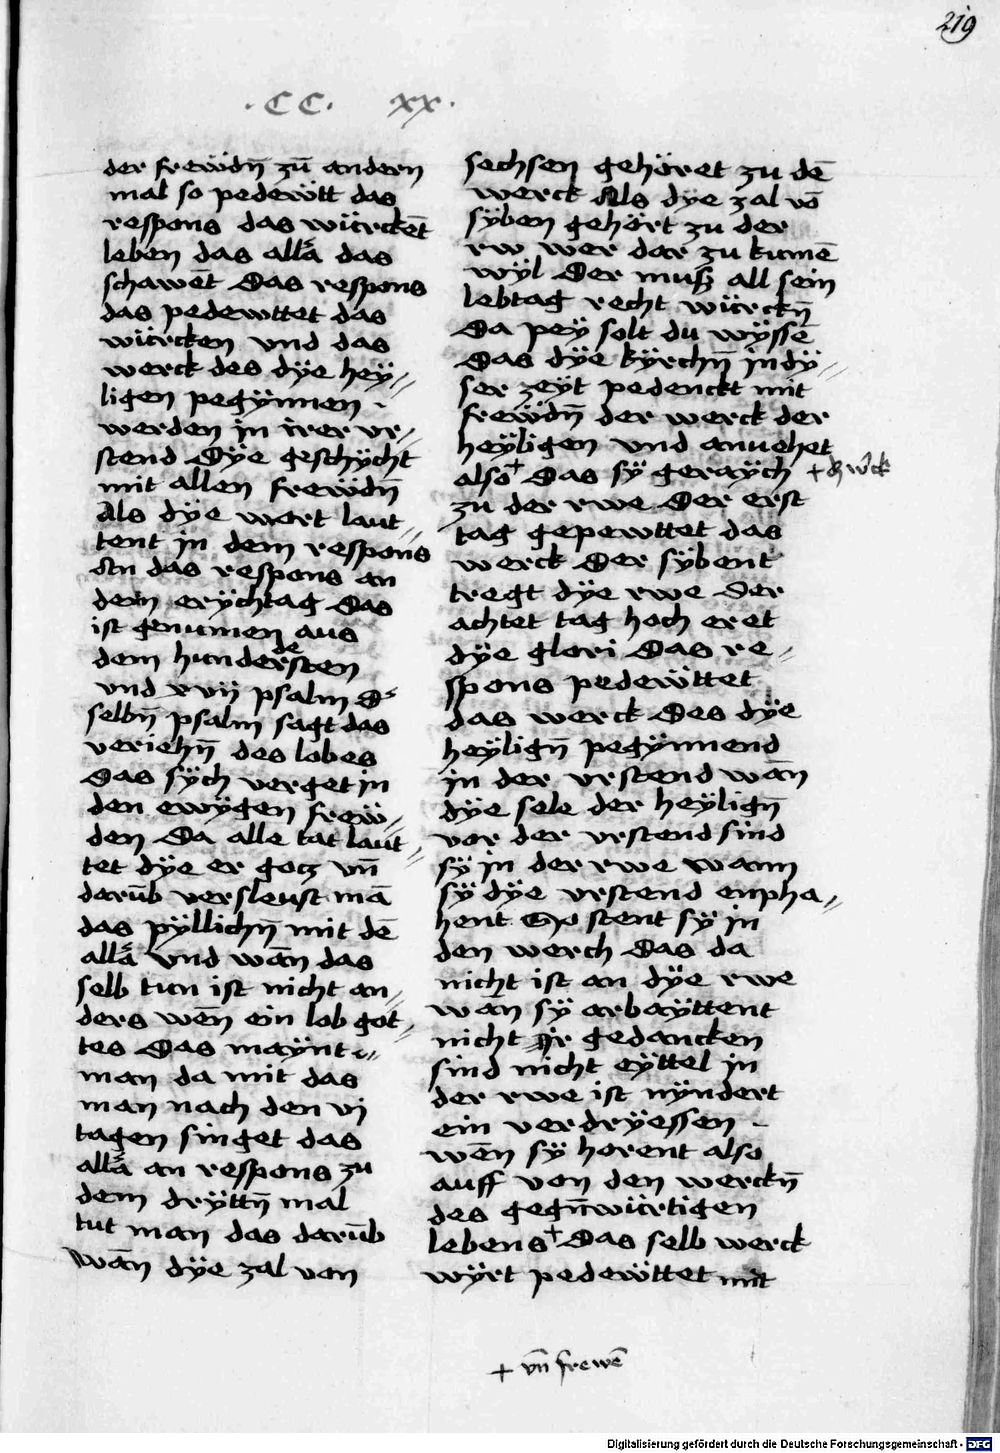 219
·CC· XX·
der frewdn̄ zū andern
mal so pedewtt das
respons das würckēt
leben das allā das
schawēt Das respons
das pedewttet das
würcken vnd das
werck des dÿe heÿ//
ligen pegÿnnen
werden in irer vr//
stend Dÿe geschÿcht
mit allen frewdn̄
Als dÿe wort laut//
tent in dem respons
An das respons an
dem erÿchtag Das
ist genumen aus
dem hundersten
de
vnd xvij psalm d'
selbn̄ psalm sagt das
veriehn̄ des lobes
Das sÿch verget in
den ewÿgen frew//
den Da alle tat laut//
tet dÿe er gotz vn̄
darūb versleust mā
das pÿllichn̄ mit dē
allā vnd wān das
selb tun ist nicht an//
ders wēn ein lob got//
tes Das maÿnt
man da mit das
man nach den vj
tagen singet das
allā an respons zu
dem drÿttn̄ mal
tut man das darūb
wān dÿe zal von
sechsen gehöret zu dē
werck Als dÿe zal vō
sÿben gehört zu der
rw wer dar zu kumē
wÿl Der musz all sein
lebtag recht würckn̄
Da peÿ solt du wÿssē
Das dÿe kÿrchn̄ in dÿ//
ser zeÿt pedenckt mit
frewdn̄ der werck der
heÿligen vnd anuehet
also + Das sÿ geraÿch
+ wck
zu der rwe Der erst
tag gepewttet das
werck Der sÿbent
tregt dÿe rwe Der
achtet tag hoch eret
dÿe glori Das re//
spons pedewttet
das werck Des dÿe
heÿlign̄ pegÿnnend
in der vrstend wān
dÿe sele der heÿlign̄
vor der vrstend sind
sÿ in der rwe wann
sÿ dÿe vrstend enpha//
hent So stent sÿ in
den werch Das da
nicht ist an dÿe rwe
wān sÿ arbaÿttent
nicht Ir gedancken
sind nicht eÿttel in
der rwe ist nÿndert
ein verdrÿessen
wēn sÿ horent also
auff von den werckn̄
des gegn̄würtigen
lebens + Das selb werck
wÿrt pedewttet mit
+ vn̄ frewē
Digitalisierung gefördert durch die Deutsche Forschungsgemeinschaft - DFG